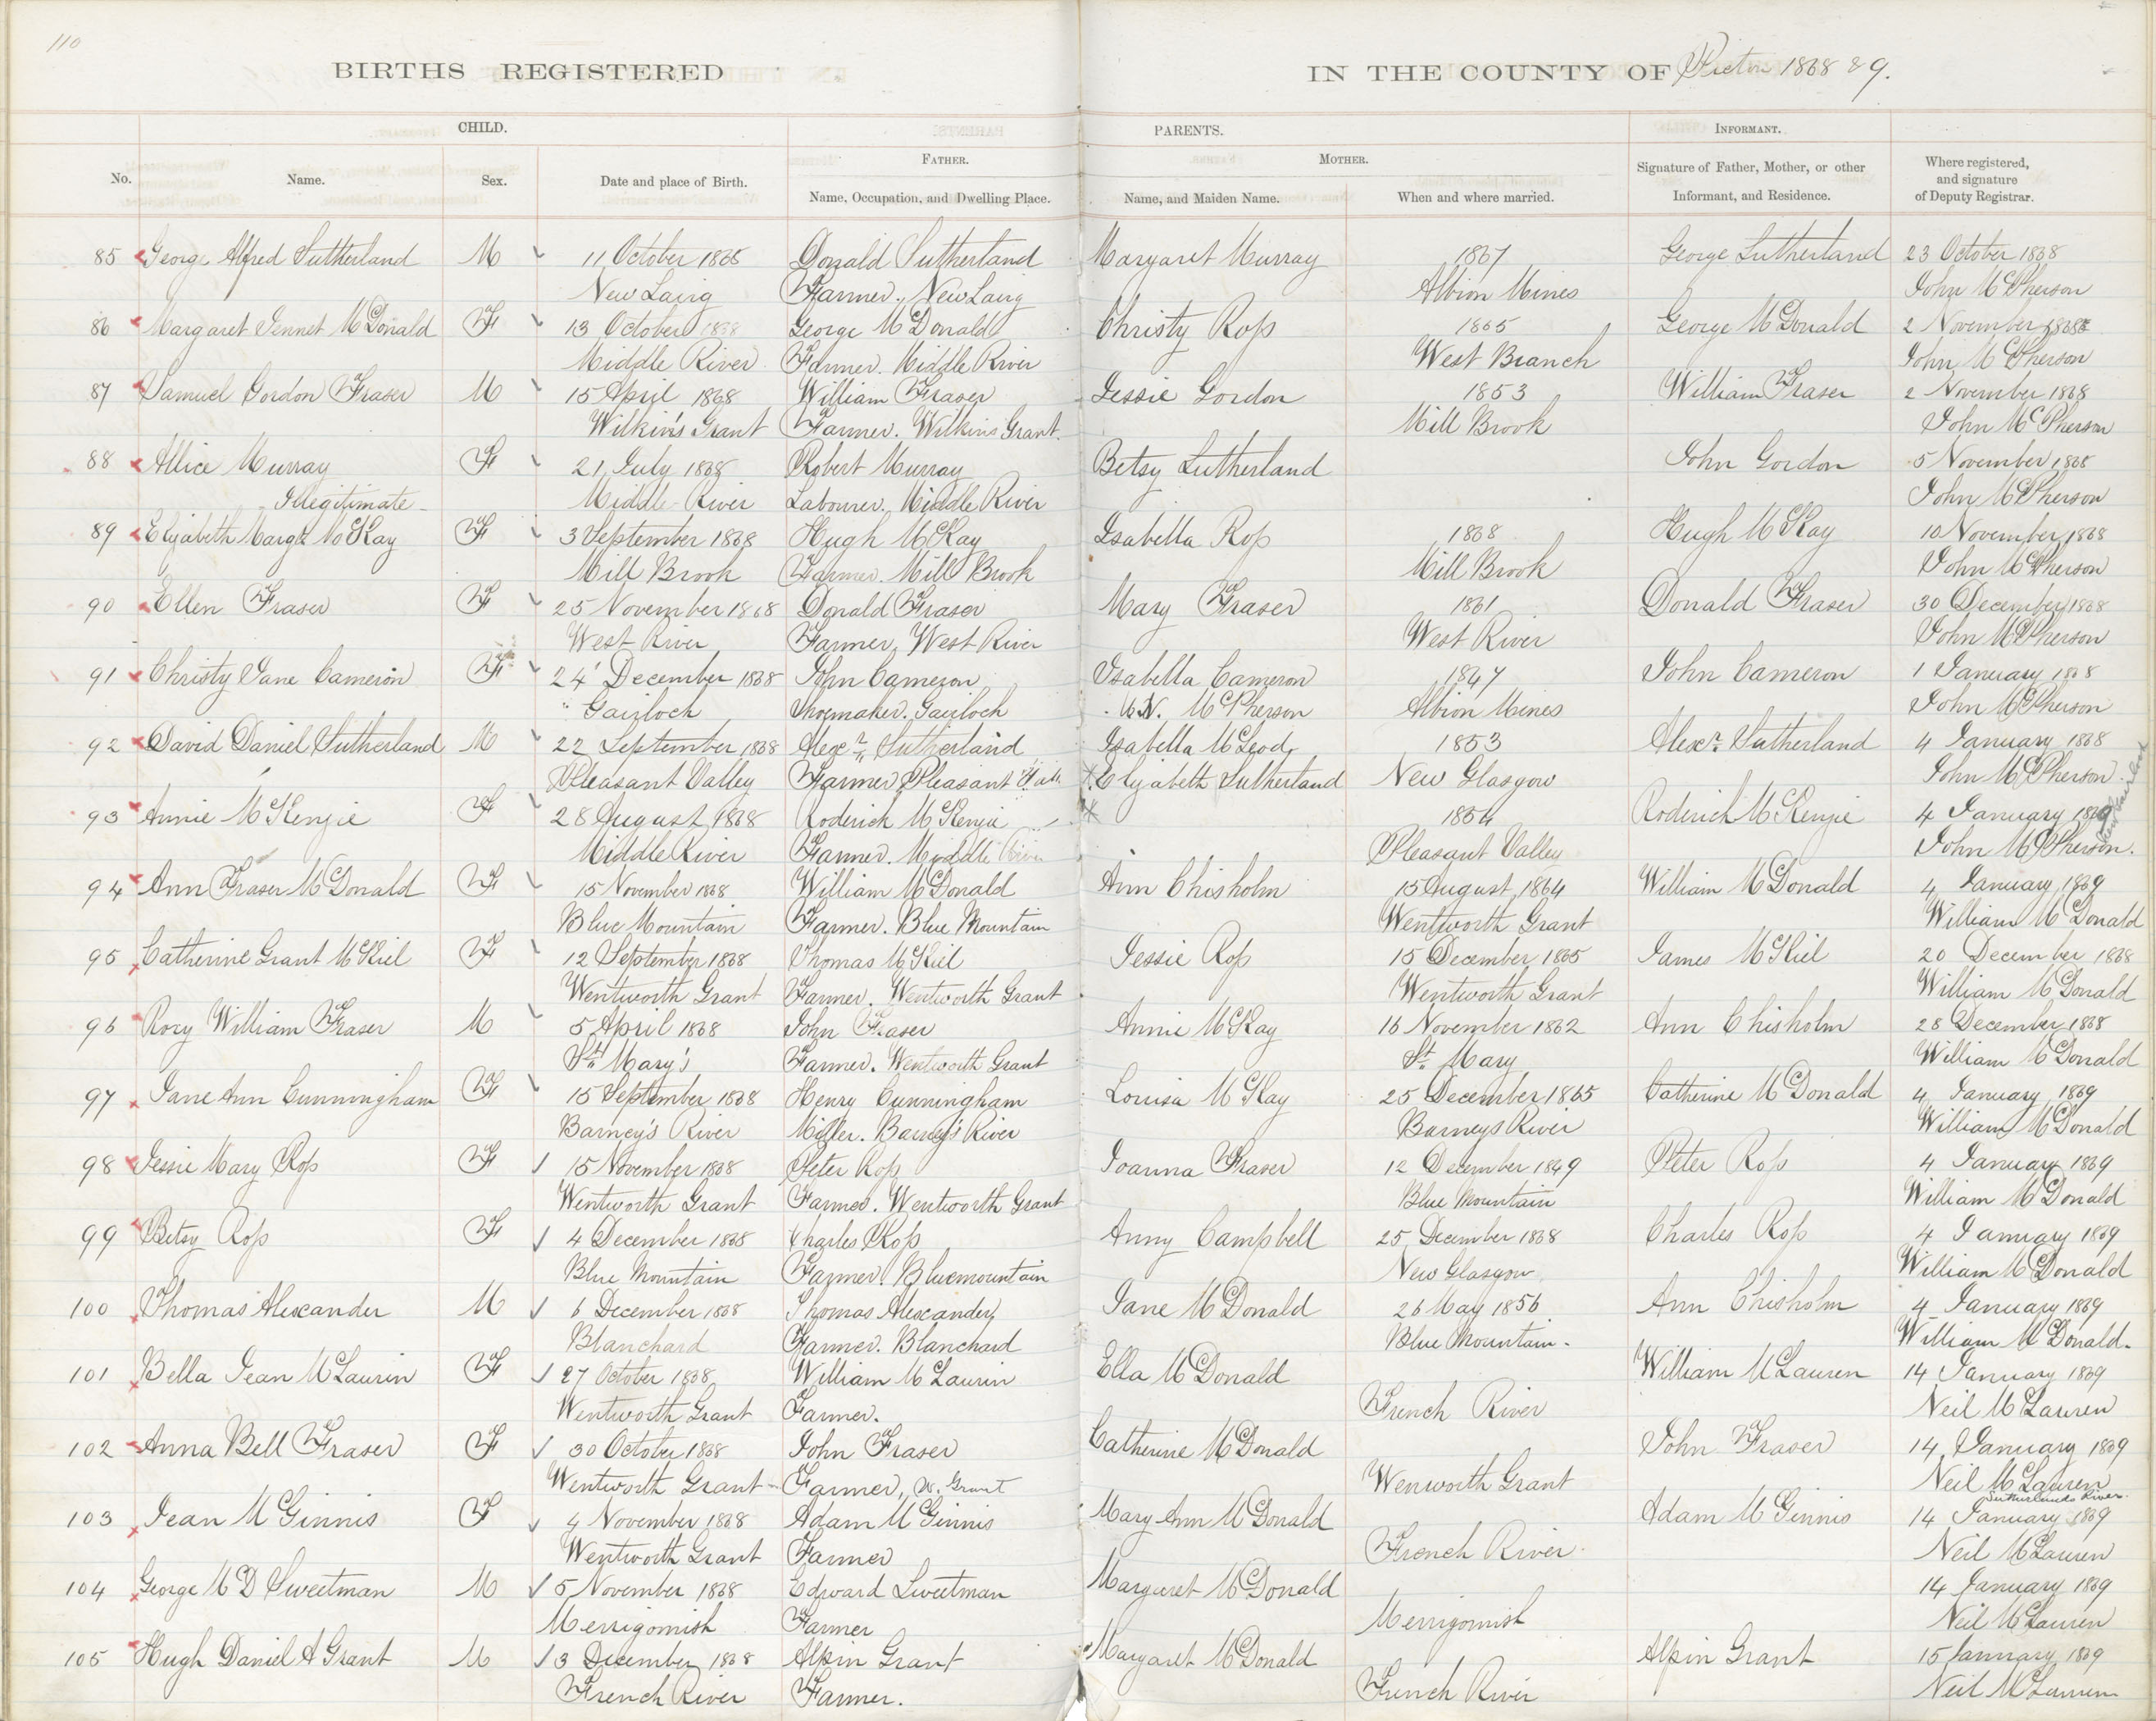 110
BIRTHS REGISTERED IN THE COUNTY OF Pictou 1868 & 9.
CHILD. PARENTS. INFORMANT.
FATHER. MOTHER.
No. Name. Sex. Date and place of Birth. Name, Occupation, and Dwelling Place. Name, and Maiden Name. When and where married. Signature of Father, Mother, or other Informant, and Residence. Where registered, and signature of Deputy Registrar.
85 George Alfred Sutherland M 11 October 1868 Donald Sutherland Margaret Murray 1867 George Sutherland 23 October 1868
New Lairg Farmer. New Lairg Albion Mines John McPherson
86 Margaret Jennet McDonald F 13 October 1868 George McDonald Christy Ross 1865 George McDonald 2 November 1868
Middle River Farmer. Middle River West Branch John McPherson
87 Samuel Gordon Fraser M 15 April 1868 William Fraser Jessie Gordon 1853 William Fraser 2 November 1868
Wilkin's Grant Farmer. Wilkins Grant. Mill Brook John McPherson
88 Allice Murray F 21 July 1868 Robert Murray Betsy Sutherland John Gordon 5 November 1868
Illegitimate Middle River Labourer. Middle River John McPherson
89 Elizabeth Margt McKay F 3 September 1868 Hugh McKay Isabella Ross 1868 Hugh McKay 10 November 1868
Mill Brook Farmer. Mill Brook Mill Brook John McPherson
90 Ellen Fraser F 25 November 1868 Donald Fraser Mary Fraser 1861 Donald Fraser 30 December 1868
West River Farmer, West River West River John McPherson
91 Christy Jane Cameron F 24 December 1868 John Cameron Isabella Cameron 1847 John Cameron 1 January 1868
Gairloch Shoemaker. Gairloch M.N. McPherson Albion Mines John McPherson
92 David Daniel Sutherland M 22 September 1868 Alexr Sutherland Isabella McLeod 1853 Alexr Sutherland 4 January 1868
Pleasant Valley Farmer Pleasant Vall * Elizabeth Sutherland New Glasgow John McPherson
93 Annie McKenzie F 28 August 1868 Roderick McKenzie * 1854 Roderick McKenzie 4 January 1869
Middle River Farmer. Middle River Pleasant Valley John McPherson.
94 Ann Fraser McDonald F 15 November 1868 William McDonald Ann Chisholm 15 August 1864 William McDonald 4 January 1869
Blue Mountain Farmer. Blue Mountain Wentworth Grant William McDonald
95 Catherine Grant McKiel F 12 September 1868 Thomas McKiel Jessie Ross 15 December 1865 James McKiel 20 December 1868
Wentworth Grant Farmer. Wentworth Grant Wentworth Grant William McDonald
96 Rory William Fraser M 5 April 1868 John Fraser Annie McKay 16 November 1862 Ann Chisholm 28 December 1868
St Mary's Farmer. Wentworth Grant St Mary William McDonald
97 Jane Ann Cunningham F 15 September 1868 Henry Cunningham Louisa McKay 25 December 1865 Catherine McDonald 4 January 1869
Barney's River Miller. Barney's River Barneys River William McDonald
98 Jessie Mary Ross F 15 November 1868 Peter Ross Joanna Fraser 12 December 1849 Peter Ross 4 January 1869
Wentworth Grant Farmer. Wentworth Grant Blue Mountain William McDonald
99 Betsy Ross F 4 December 1868 Charles Ross Anny Campbell 25 December 1868 Charles Ross 4 January 1869
Blue Mountain Farmer. Bluemountain New Glasgow William McDonald
100 Thomas Alexander M 6 December 1868 Thomas Alexander Jane McDonald 26 May 1856 Ann Chisholm 4 January 1869
Blanchard Farmer. Blanchard Blue Mountain. William McDonald.
101 Bella Jean McLaurin F 27 October 1868 William McLaurin Ella McDonald William McLauren 14 January 1869
Wentworth Grant Farmer. French River Neil McLauren
102 Anna Bell Fraser F 30 October 1868 John Fraser Catherine McDonald John Fraser 14 January 1869
Wentworth Grant Farmer, W. Grant Wenworth Grant Neil McLauren
Sutherlands River
103 Jean McGinnis F 4 November 1868 Adam McGinnis Mary Ann McDonald Adam McGinnis 14 January 1869
Wentworth Grant Farmer French River Neil McLauren
104 George McD Sweetman M 5 November 1868 Edward Sweetman Margaret McDonald 14 January 1869
Merrigomish Farmer Merrigomish Neil McLauren
105 Hugh Daniel A Grant M 3 December 1868 Alpin Grant Margaret McDonald Alpin Grant 15 January 1869
French River Farmer. French River Neil McLauren